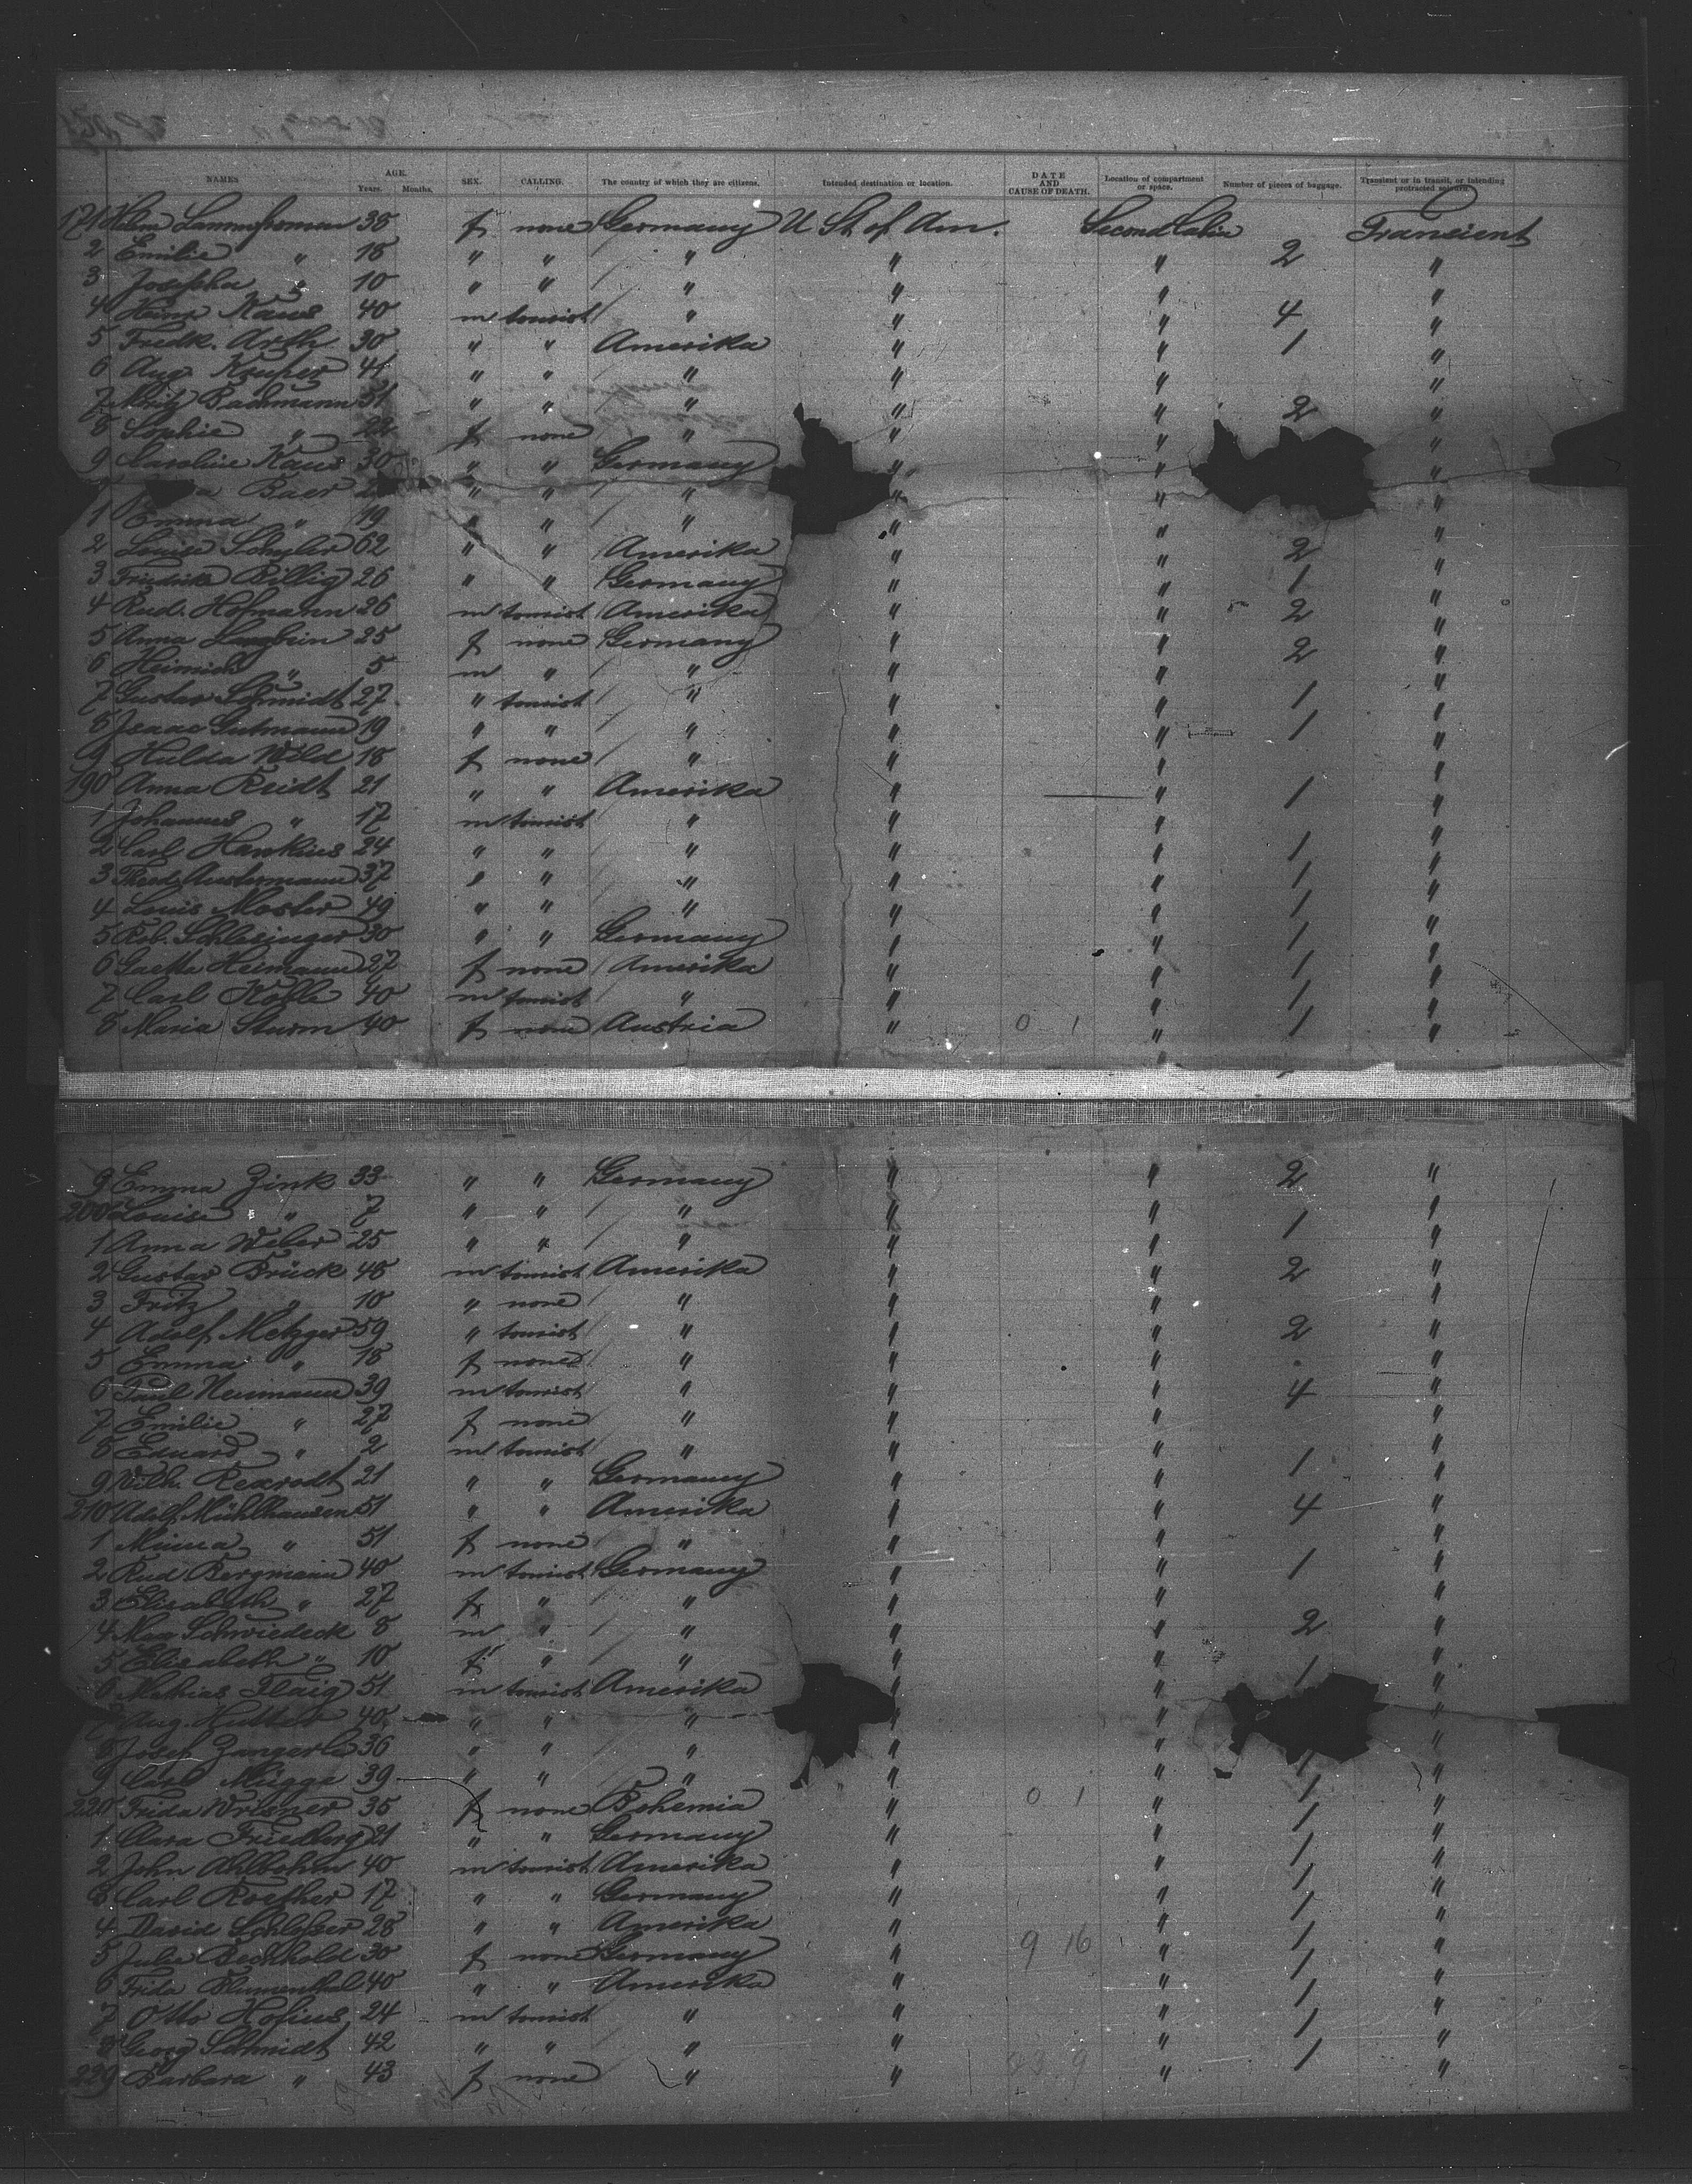 NAMES AGE. Years. Months. SEX. CALLING. The country of which they are citizens. Intended destination or location. DATE AND CAUSE OF DEATH. Location of compartment or space. Number of pieces of baggage. Transient or in transit, or intending protracted sojourn
171 38 f none Germany U St of Am. Second Cabin Transient
2 Emilie " 18 " " " " " 2 "
3 Josepha " 10 " " " " " "
4 Kaus 40 m tourist " " " 4 "
5 Fredk. Arth 30 " " Amerika " " 1 "
6 Aug. 41 " " " " " "
7 Moritz Bachmann 51 " " " " " 2 "
8 Sophie " 22 f none " " "
9 Caroline Kaus 30 " " Germany " " "
Baer " " " " " "
1 Emma " 19 " " " " " "
2 Louise Schuyler 62 " " Amerika " " 2 "
3 Billig 26 " " Germany " " 1 "
4 Rud. Hofmann 26 m tourist Amerika " " 2 "
5 Anna 25 f none Germany " " 2 "
6 Heinrich " 5 m " " " " "
7 Gustav Schmidt 27 " tourist " " " 1 "
8 Isaac Gutmann 19 " " " " " 1 "
9 Hulda Wild 18 f none " " " "
190 Anna Reidt 21 " " Amerika " " 1 "
1 Johannes " 17 m tourist " " " "
2 Carl Hankins 24 " " " " " 1 "
3 Theod. Austermann 37 " " " " " 1 "
4 Louis Moster 49 " " " " " 1 "
5 Rob. Schlesinger 30 " " Germany " " 1 "
6 Heimann 27 f none Amerika " " 1 "
7 Carl Kolle 40 m tourist " " " 1 "
8 Maria Sturm 40 f none Austria " 0 1 " 1 "
9 Emma Zink 33 " " Germany " " 2 "
200 Louise " 7 " " " " " "
1 Anna Weber 25 " " " " " 1 "
2 Gustav Brück 48 m tourist Amerika " " 2 "
3 Fritz " 10 " none " " " "
4 Adolf Metzger 59 " tourist " " " 2 "
5 Emma " 18 f none " " " "
6 Paul Neumann 39 m tourist " " " 4 "
7 Emilie " 27 f none " " " "
8 Eduard " 2 m tourist " " " "
9 Wilh. Rexrodt 21 " " Germany " " 1 "
210 Adolf Mühlhausen 51 " " Amerika " " 4 "
1 Minna " 51 f none " " " "
2 Rud Bergmann 40 m tourist Germany " " 1 "
3 Elisabeth " 27 f " " " " "
4 Max Schwiedeck 8 m " " " " 2 "
5 Elisabeth " 10 f " " " " "
6 Mathias Flaig 51 m tourist Amerika " " 1 "
7 Aug. Hutter 40 " " " " "
8 Josef Zangerle 36 " " " " " "
9 Carl Mügge 39 " " " " " 1 "
220 Frida Wrisner 35 f none Bohemia " 0 1 " 1 "
1 Clara Friedberg 21 " " Germany " " 1 "
2 John Ahlbohm 40 m tourist Amerika " " 1 "
3 Carl 17 " " Germany " " 1 "
4 David 28 " " Amerika " " 1 "
5 Julie Bechhold 30 f none Germany " 9 16 " 1 "
6 Frida Blumenthal 40 " " Amerika " " 1 "
7 Otto Hofius 24 m tourist " " " 1 "
8 Georg Schmidt 42 " " " " " 1 "
229 Barbara " 43 f none " " " 1 "